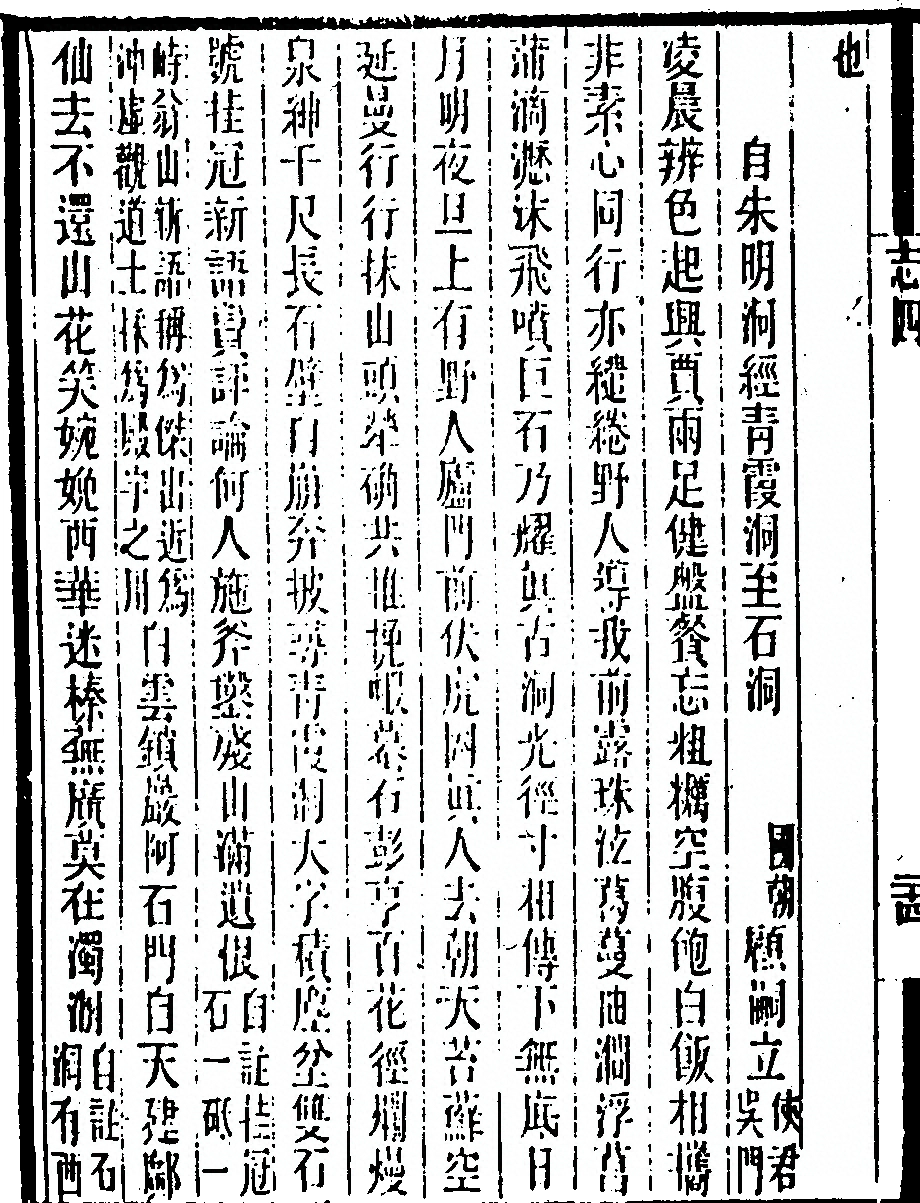 志四
也
自朱明洞經青霞洞至石洞　國朝顧嗣立使君吳門
凌晨辨色起興賈雨足健盤餐忘粗糲空腹飽白飯相攜
非素心同行亦繾綣野人導我前露珠泫葛蔓曲澗浮菖
蒲滴瀝沫飛噴巨石乃耀真古洞光徑寸相傳下無底日
月明夜旦上有野人廬門前伏虎困真人去朝天苔蘚空
延曼行行抹山頭犖确共推挽蝦蟇石彭亨百花徑爛熳
泉紳千尺長石壁自崩奔披尋青霞洞大字積塵坌雙石
號挂冠新語費評論何人施斧鑿殘山滿遺恨自註挂冠石一砥一
峙翁山新語稱為傑出近為冲虛觀道士採為殿宇之用白雲鎖巖阿石門自天建鄰
仙去不還山花笑婉娩西華迷榛無廣莫在濁溷自註石洞有西